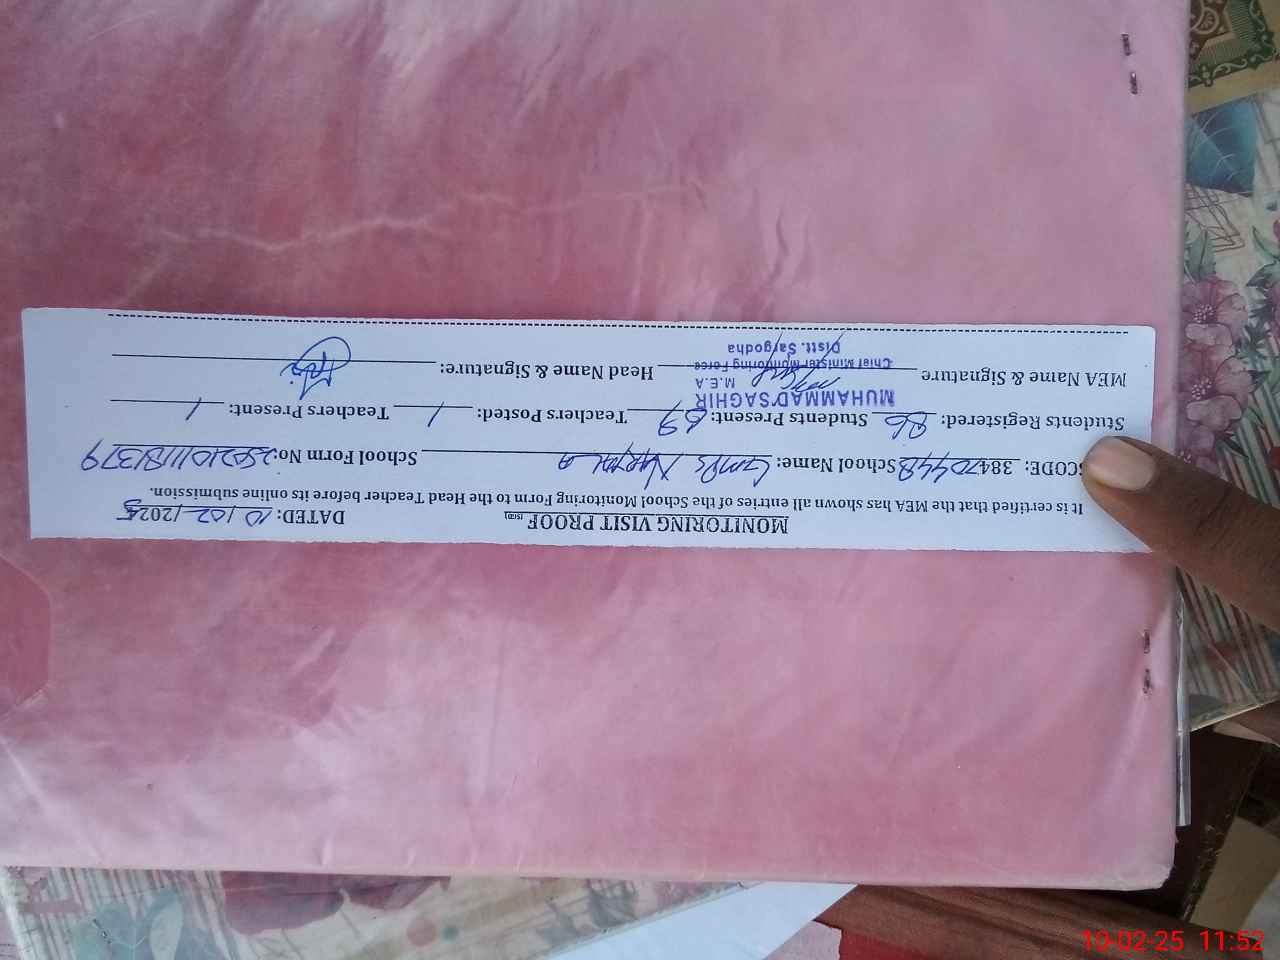 MONITORING VISIT PROOF
DATED: 10/02/2025
It is certified that the MEA has shown all entries of the School Monitoring Form to the Head Teacher before its online submission.
SCODE: 38470448 School Name: GMPS School Form No:
Students Registered: 86 Students Present: 69 Teachers Posted: 1 Teachers Present: 1
MUHAMMAD SAGHIR
M.E.A
MEA Name & Signature Head Name & Signature:
Chief Minister Monitoring Force
Distt. Sargodha
10-02-25 11:52